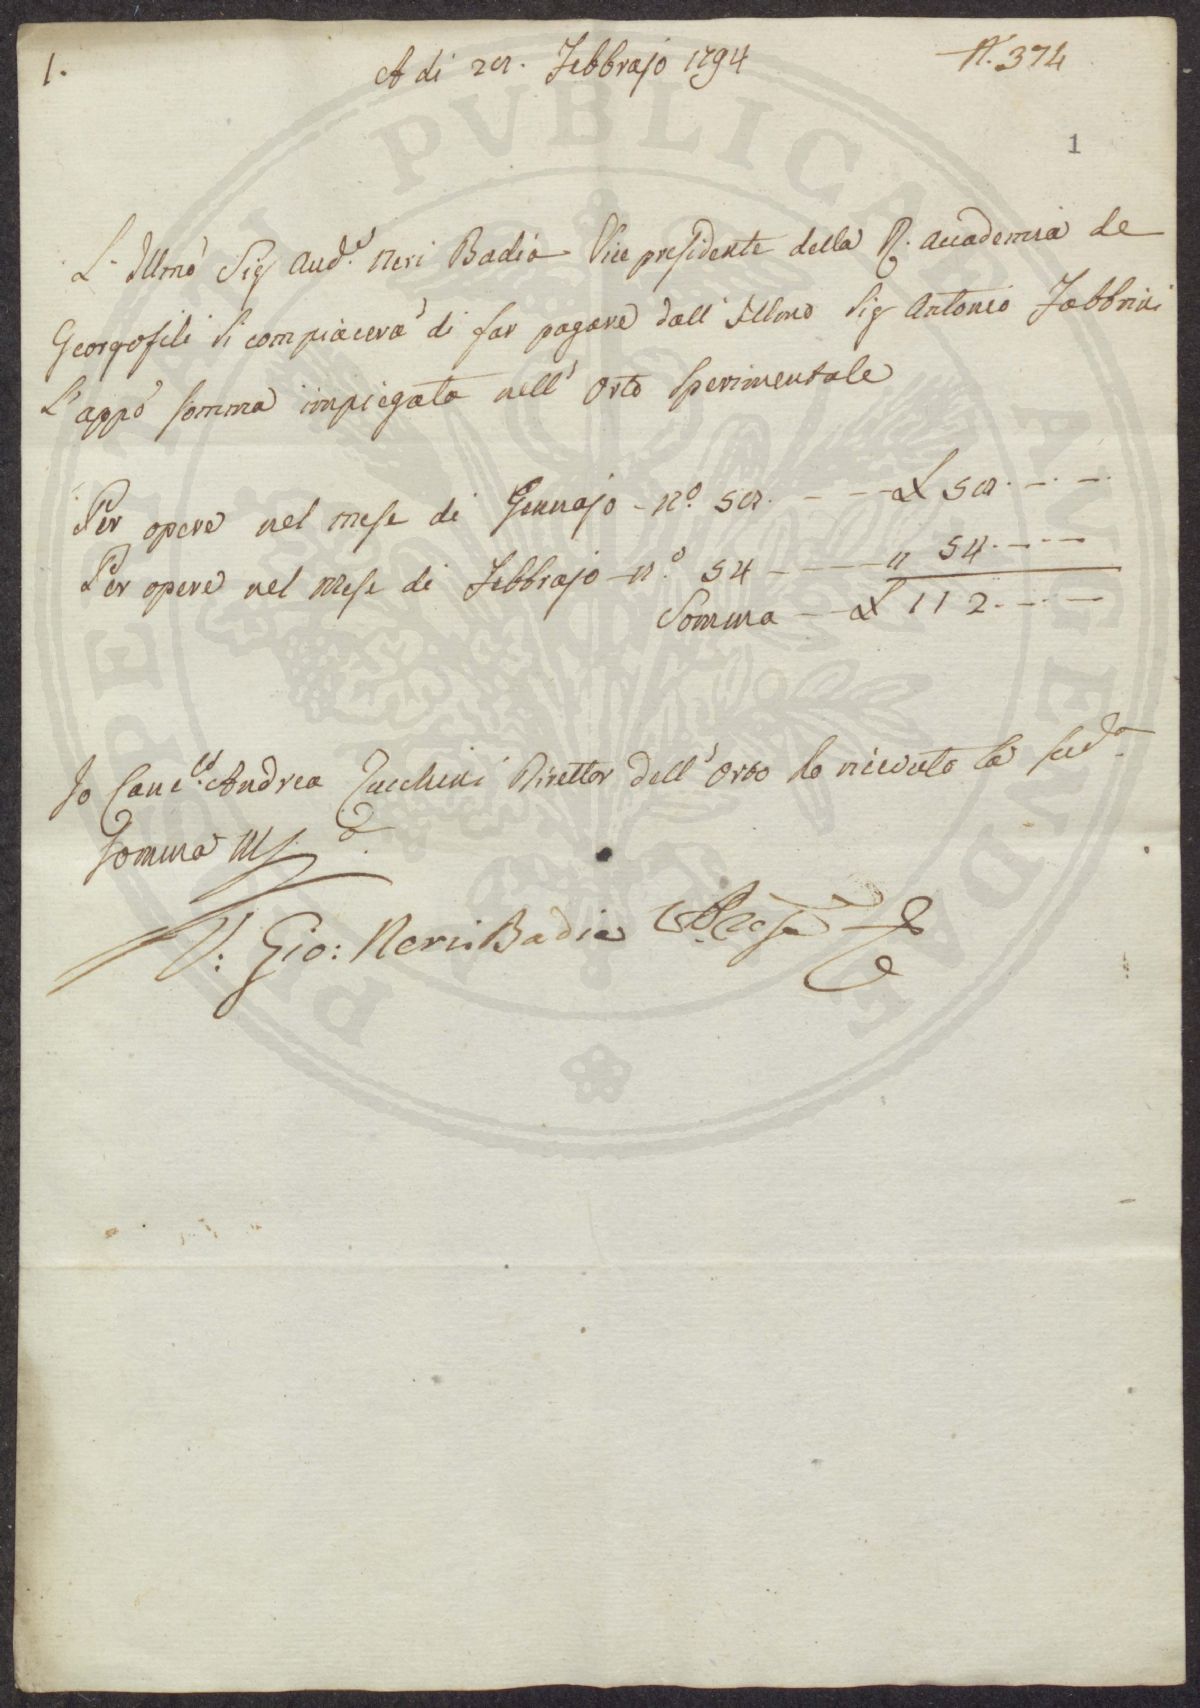 1.
A di 28. Febbrajo 1794
N. 374
1
L'Illmo Sig Aud.e Neri Badia Vice presidente della R. Accademia de
Georgofili si compiacerà di far pagare dall' Illmo Sig Antonio Fabbrini
L'appo somma impiegata nell' Orto Sperimentale
Per opere nel mese di Gennajo - n.o 58. - - - £ 58. - - . -
Per opere nel mese di Febbrajo - n.o 54 - - - - " 54. - . - -
Somma - - £ 112. - - . -
Io Canc.o Andrea Zucchini Direttor dell' Orto ho ricevuto la sud.a
somma
V: Gio: Neri Badia
PROSPERITATI PVBLICAE AVGENDAE